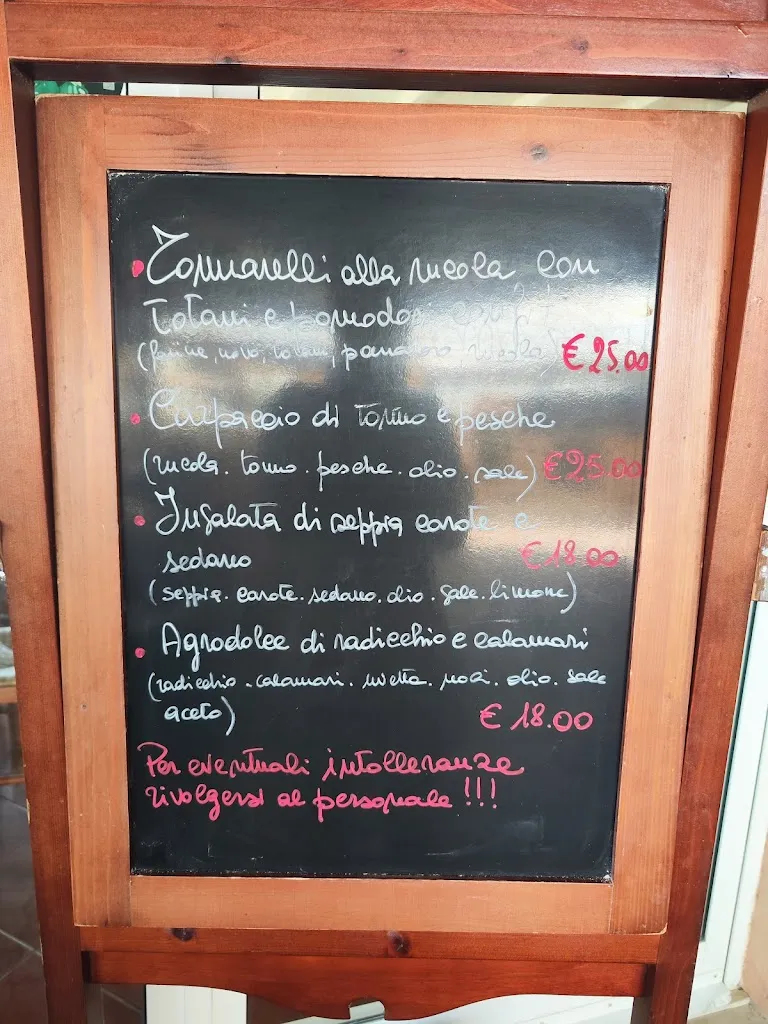 Tonnarelli alla rucola con
Totani e pomodori confit
(farina, uova, totani, pomodoro, rucola) € 25.00
Carpaccio di tonno e pesche
(rucola. tonno. pesche. olio. sale) € 25.00
Insalata di seppia carote e
sedano € 18.00
(seppia. carote. sedano. olio. sale. limone)
Agrodolce di radicchio e calamari
(radicchio. calamari. uvetta. noci. olio. sale
aceto) € 18.00
Per eventuali intolleranze
rivolgersi al personale !!!